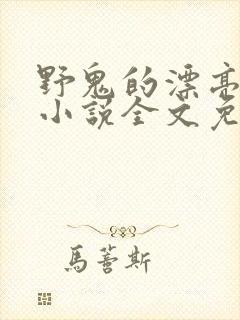 野鬼的漂亮
小说全文免
馬蒼斯